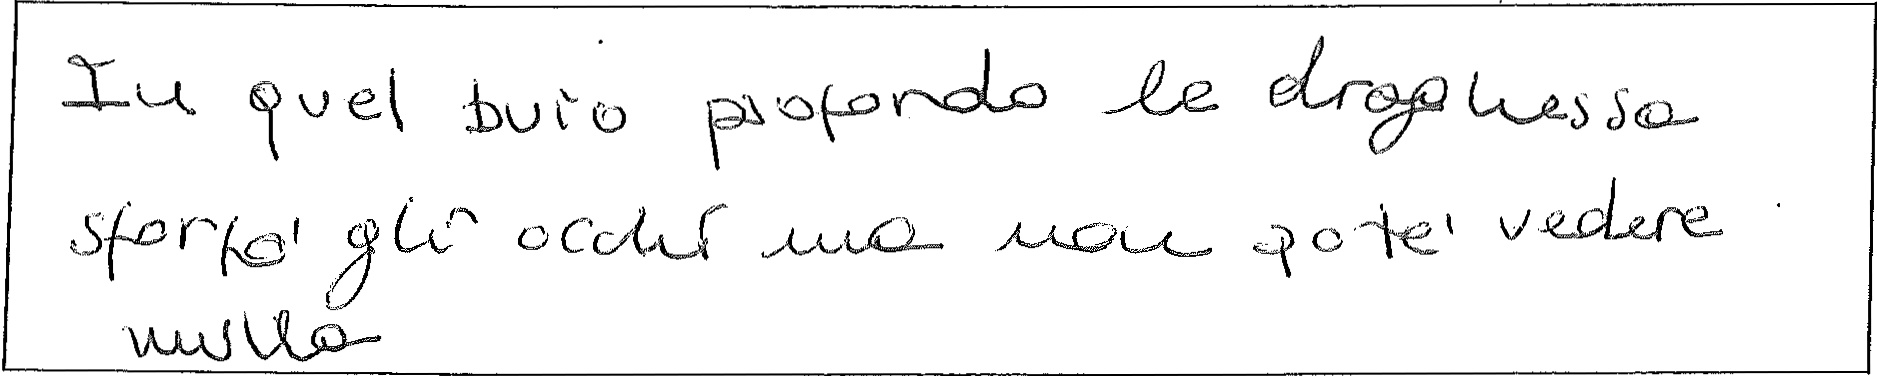 In quel buio profondo la dragonessa
sforzo' gli occhi ma non pote' vedere
nulla